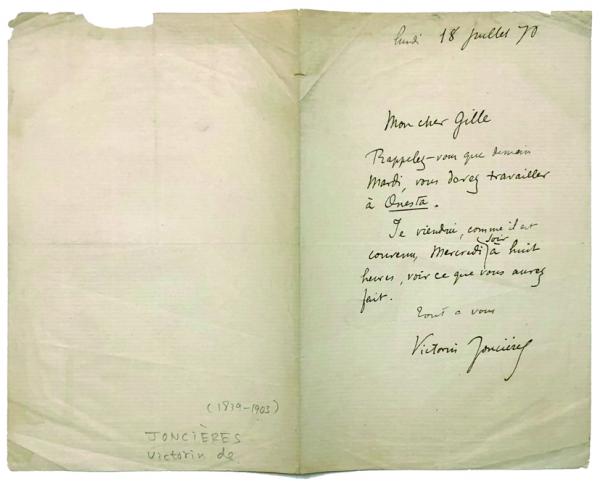 lundi 18 Juillet 70
Mon cher Gille
Rappelez-vous que demain
Mardi, vous devez travailler
à Questa.
Je viendrai, comme il est
convenu, Mercredi soir à huit
heures, voir ce que vous aurez
fait.
Tout a vous
Victorin Joncières
(1839-1903)
JONCIÈRES
Victorin de